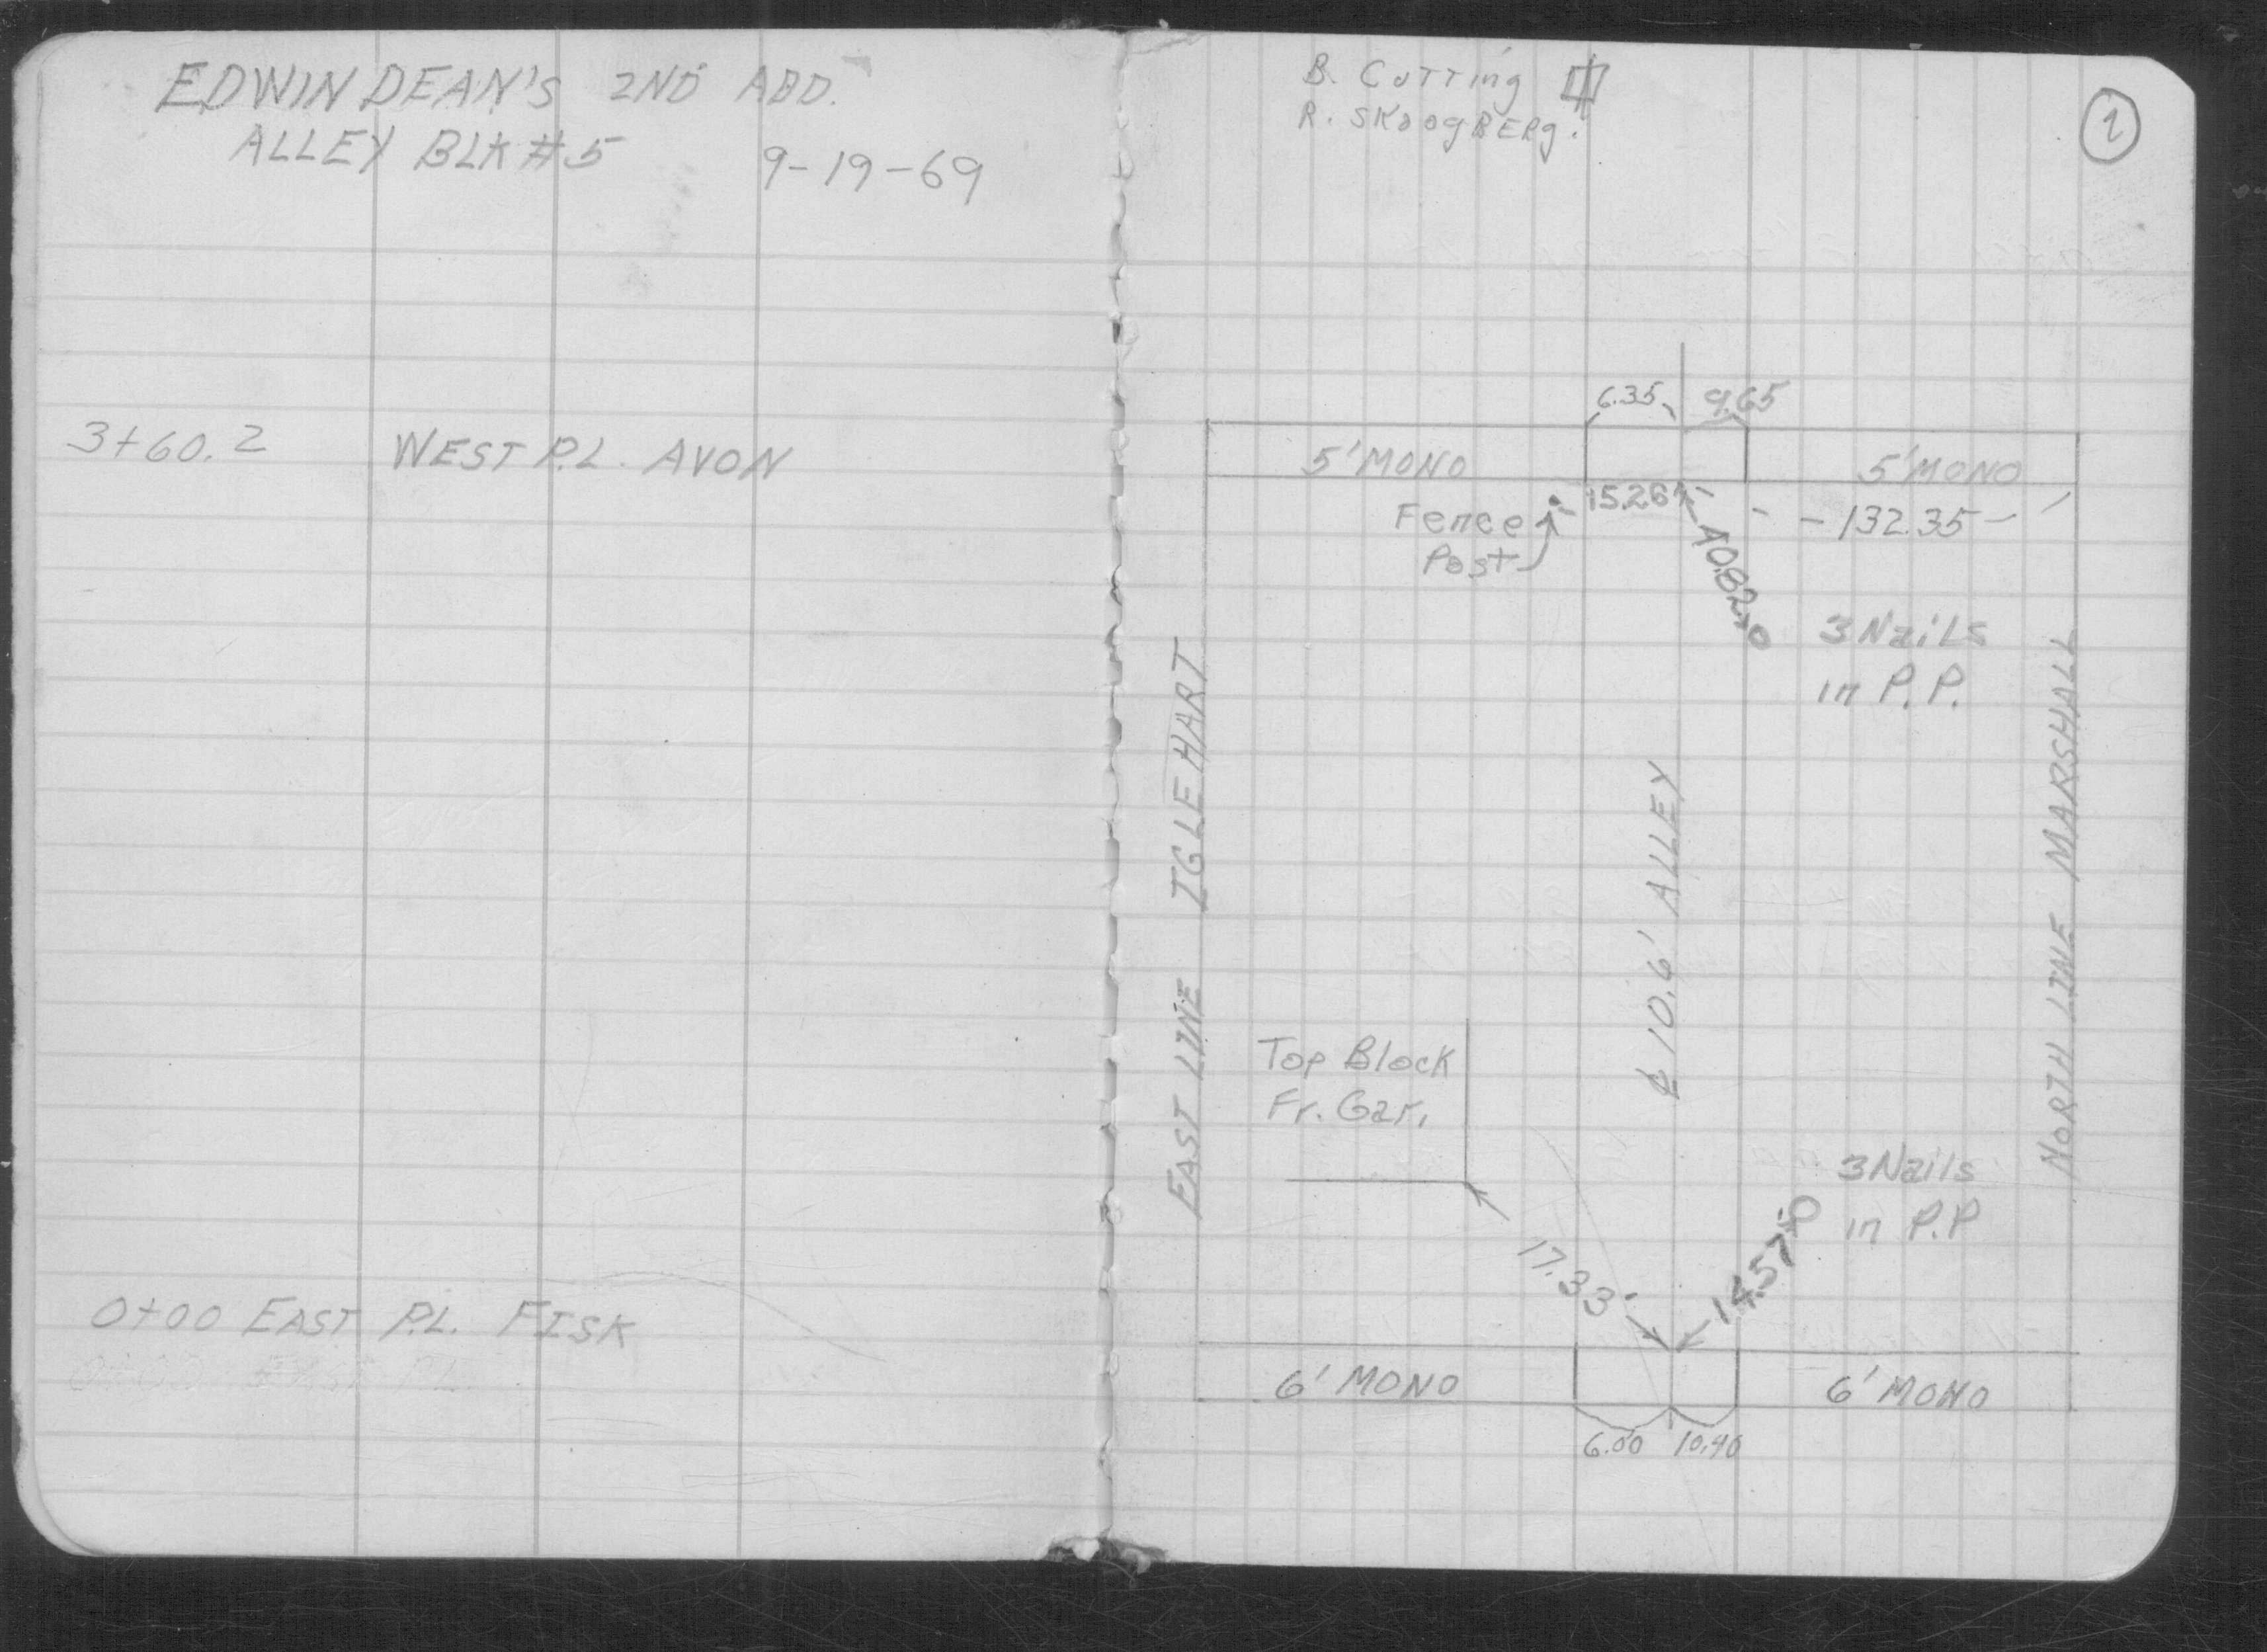 EDWIN DEAN'S 2ND ADD.
ALLEY BLK #5 9-19-69
3+60.2 WEST P.L. AVON
0+00 EAST P.L. FISK
0+00 EAST P.L.
B. CuTTing
R. SKoogBERg.
1
6.35 9.65
5' MONO 5' MONO
Fence Post
15.26
40.82
132.35
3 Nails
in P.P.
EAST LINE IGLEHART
℄ 10.6' ALLEY
NORTH LINE MARSHALL
Top Block
Fr. Gar.
3 Nails
in P.P
17.33
14.57
6' MONO 6' MONO
6.00 10.40